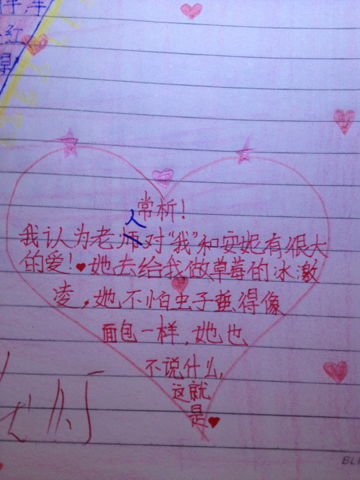 红
常析!
我认为老人对"我"和安妮有很大
的爱!她去给我做草莓的冰激
凌,她不怕虫子蛰得像
面包一样,她也
不说什么,
这就
是